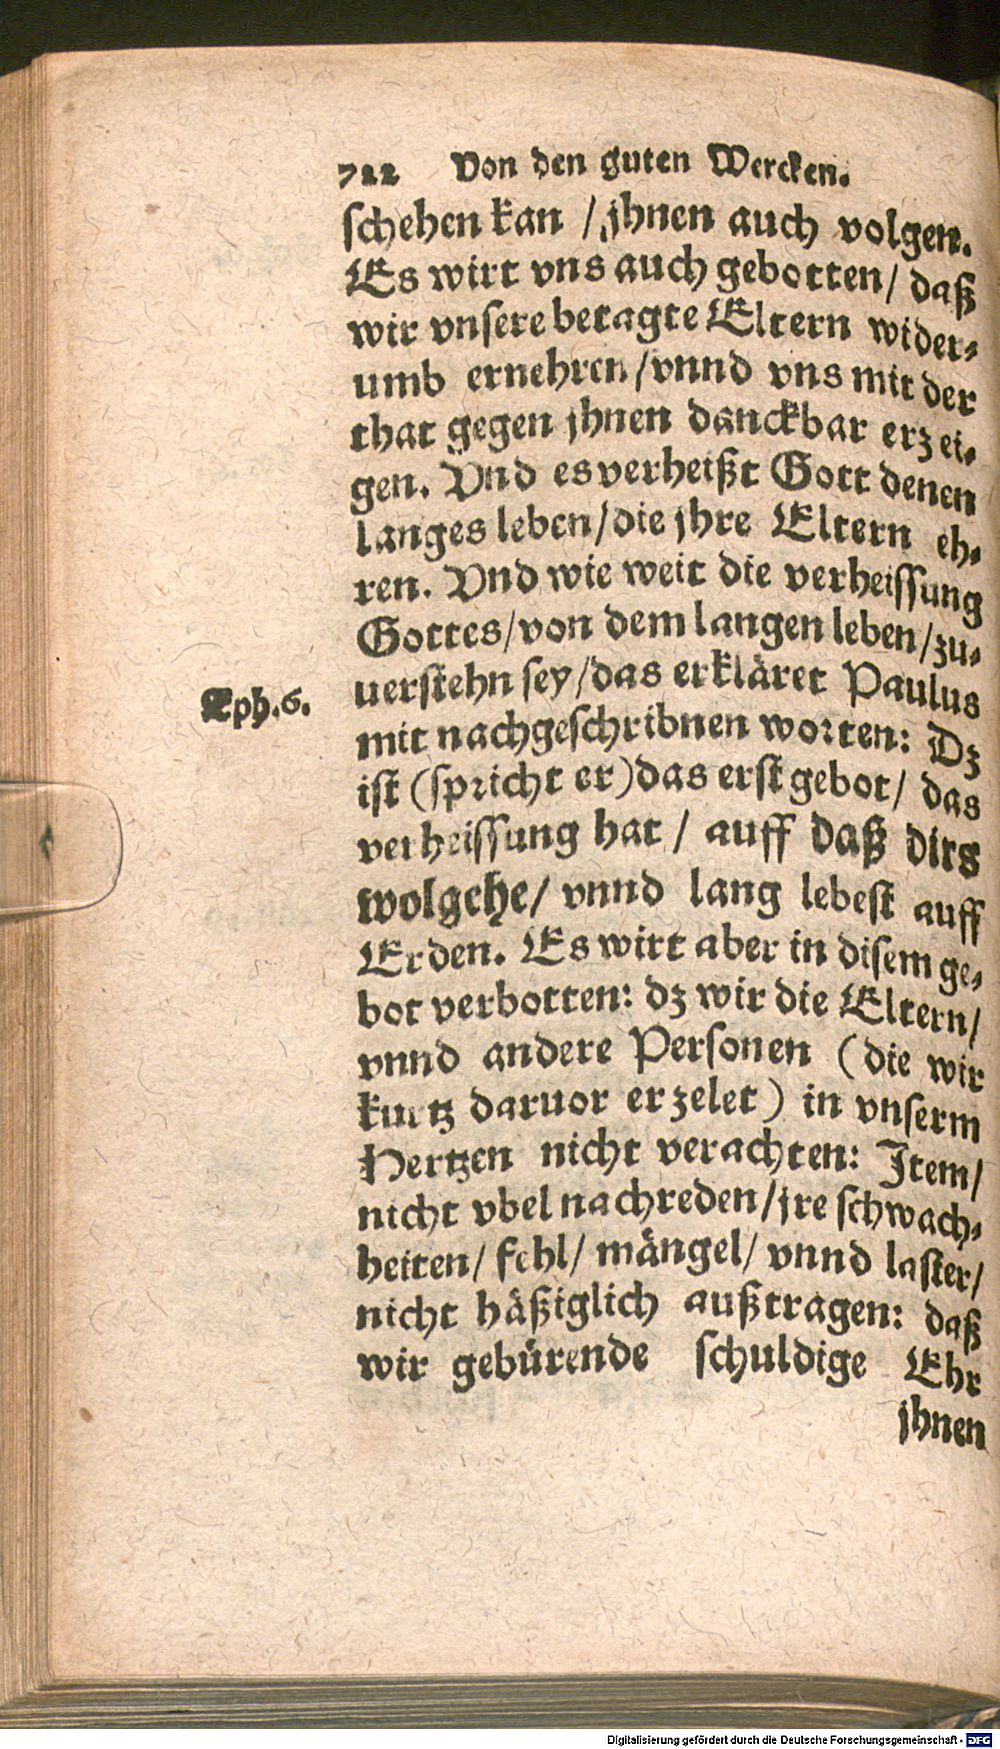 722 Von den guten Wercken.
schehen kan / jhnen auch volgen.
Es wirt vns auch gebotten / daß
wir vnsere betagte Eltern wider-
umb ernehren / vnnd vns mit der
that gegen jhnen danckbar erzei-
gen. Vnd es verheißt Gott denen
langes leben / die jhre Eltern eh-
ren. Vnd wie weit die verheissung
Gottes / von dem langen leben / zu-
uerstehn sey / das erkläret Paulus
Eph. 6.
mit nachgeschribnen worten: Dz
ist (spricht er) das erst gebot / das
verheissung hat / auff daß dirs
wolgehe / vnnd lang lebest auff
Erden. Es wirt aber in disem ge-
bot verbotten: dz wir die Eltern /
vnnd andere Personen (die wir
kurtz daruor erzelet) in vnserm
Hertzen nicht verachten: Item /
nicht vbel nachreden / jre schwach-
heiten / fehl / mängel / vnnd laster /
nicht häßiglich außtragen: daß
wir gebürende schuldige Ehr
jhnen
Digitalisierung gefördert durch die Deutsche Forschungsgemeinschaft - DFG